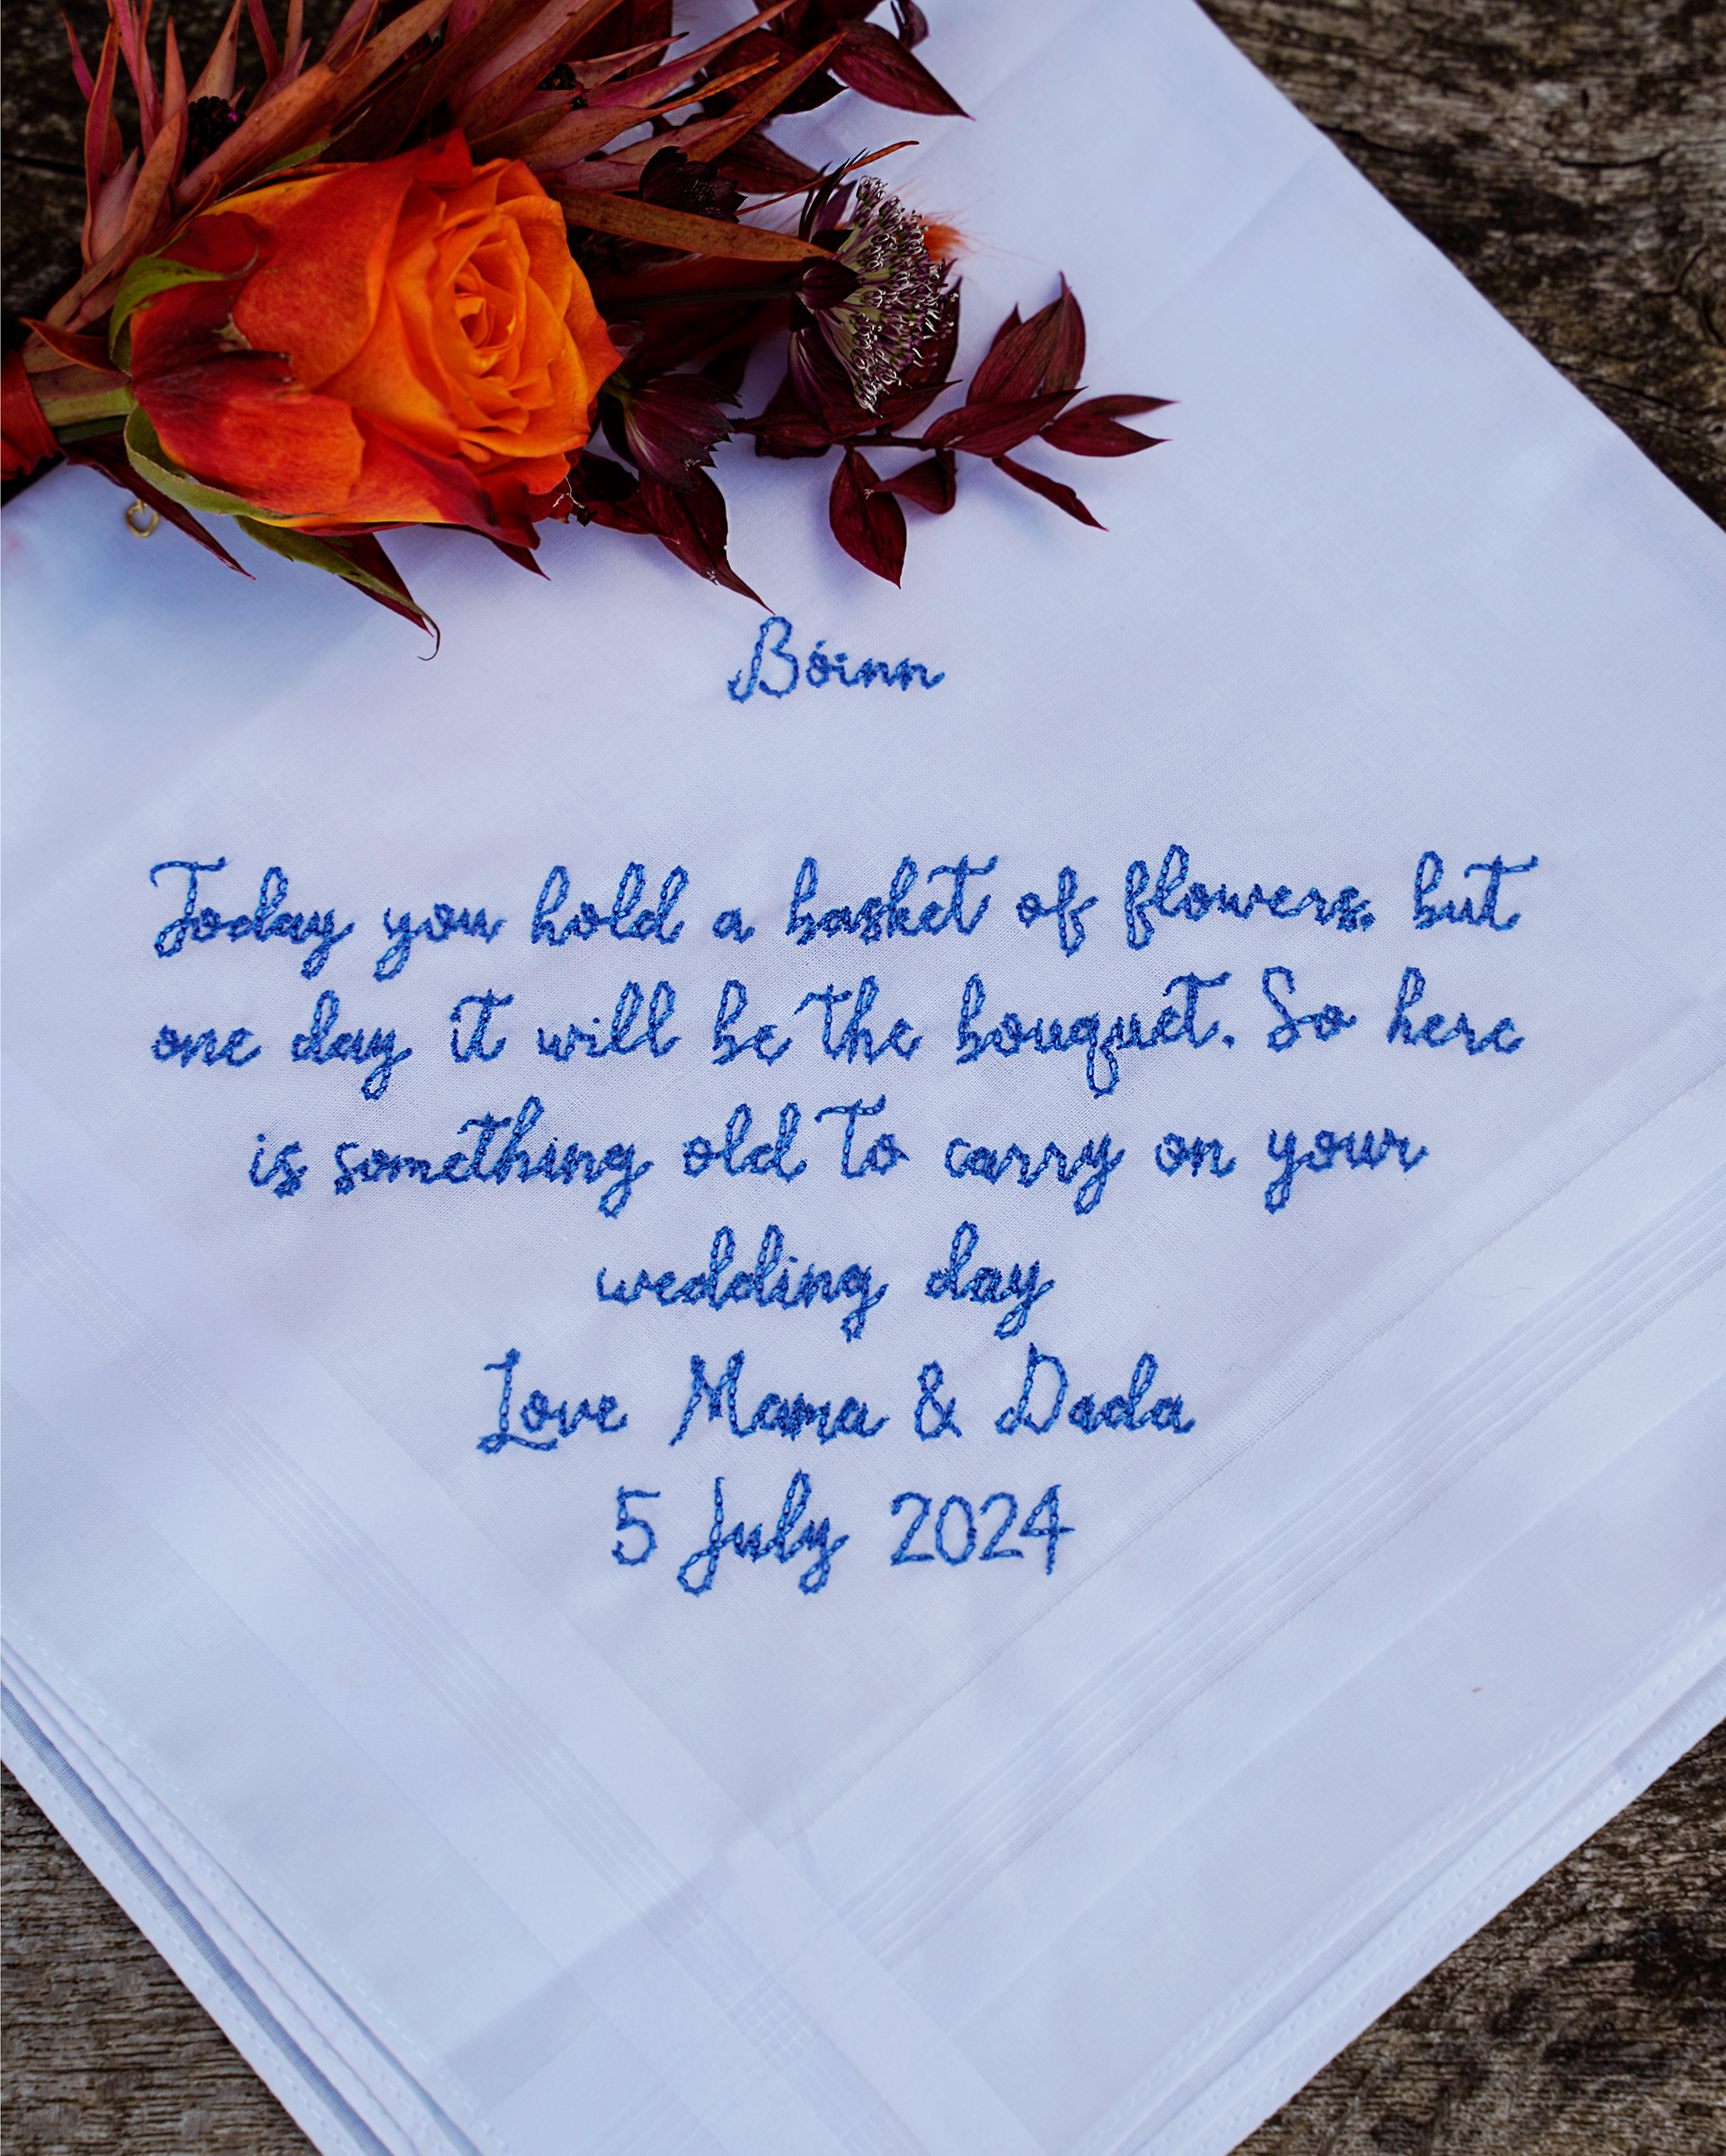 Bóinn
Today you hold a basket of flowers, but
one day it will be the bouquet. So here
is something old to carry on your
wedding day
Love Mama & Dada
5 July 2024